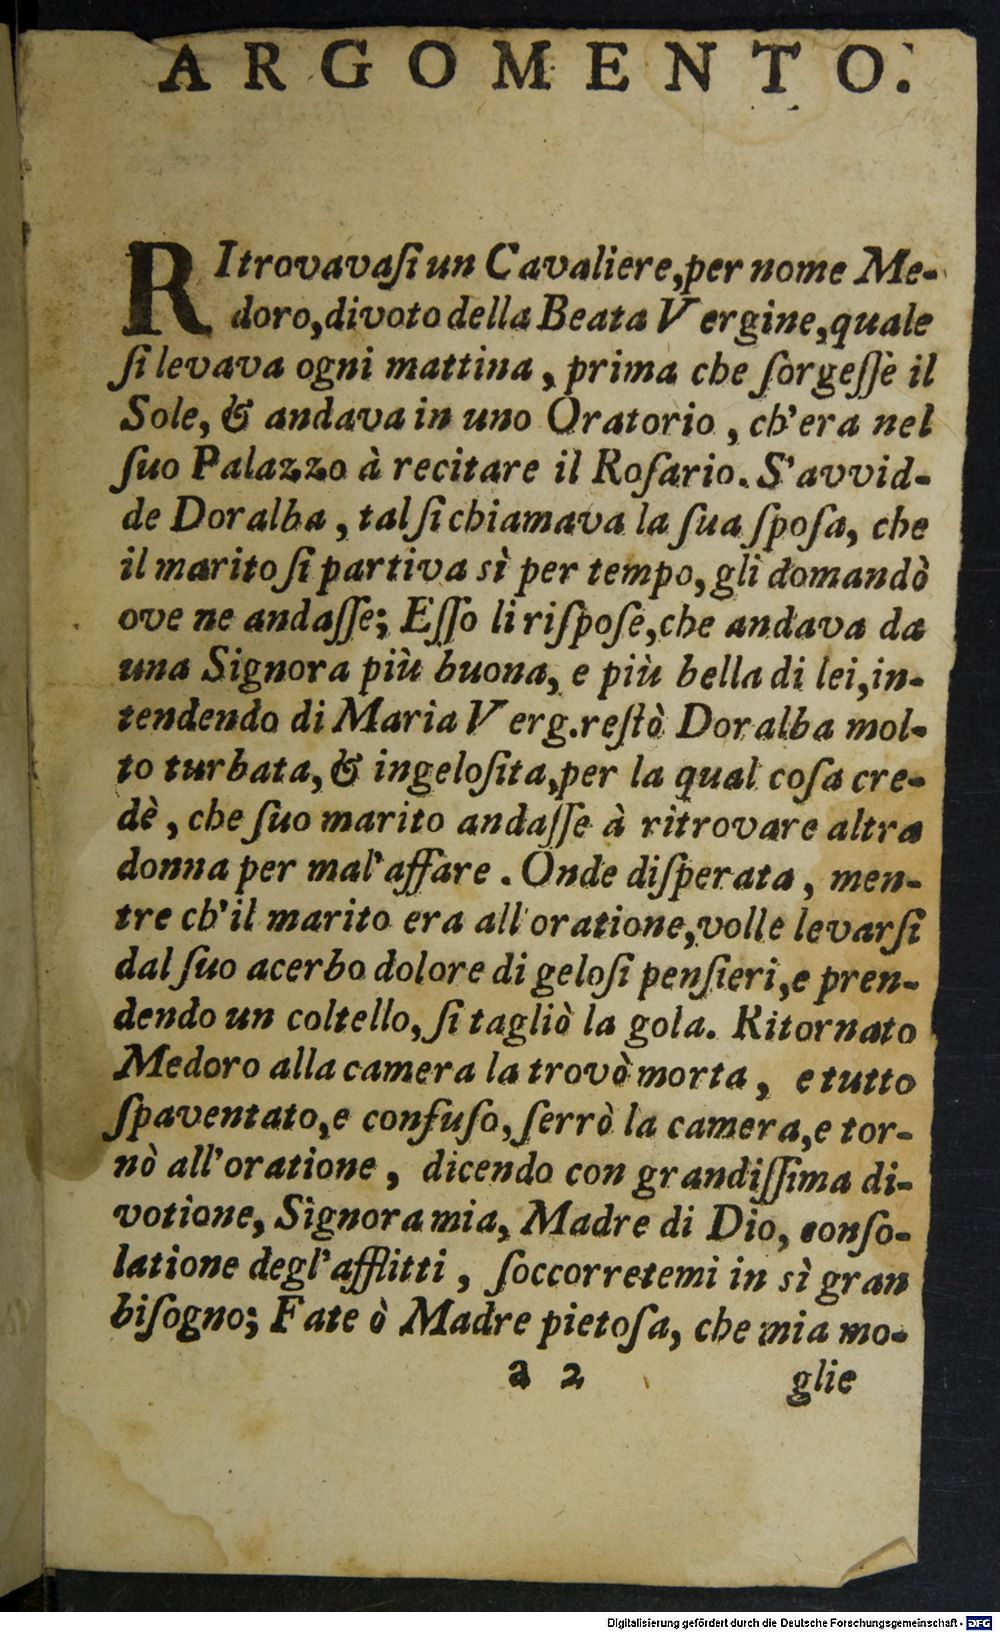 ARGOMENTO.
RItrovavaſi un Cavaliere, per nome Me-
doro, divoto della Beata Vergine, quale
ſi levava ogni mattina, prima che ſorgeſſe il
Sole, & andava in uno Oratorio, ch'era nel
ſuo Palazzo à recitare il Roſario. S'avvid-
de Doralba, tal ſi chiamava la ſua ſpoſa, che
il marito ſi partiva sì per tempo, gli domandò
ove ne andaſſe; Eſſo li riſpoſe, che andava da
una Signora più buona, e più bella di lei, in-
tendendo di Maria Verg. reſtò Doralba mol-
to turbata, & ingeloſita, per la qual coſa cre-
dè, che ſuo marito andaſſe à ritrovare altra
donna per mal'affare. Onde diſperata, men-
tre ch'il marito era all'oratione, volle levarſi
dal ſuo acerbo dolore di geloſi penſieri, e pren-
dendo un coltello, ſi tagliò la gola. Ritornato
Medoro alla camera la trovò morta, e tutto
ſpaventato, e confuſo, ſerrò la camera, e tor-
nò all'oratione, dicendo con grandiſſima di-
votione, Signora mia, Madre di Dio, conſo-
latione degl'afflitti, ſoccorretemi in sì gran
biſogno; Fate ò Madre pietoſa, che mia mo-
a 2 glie
Digitalisierung gefördert durch die Deutsche Forschungsgemeinschaft - DFG